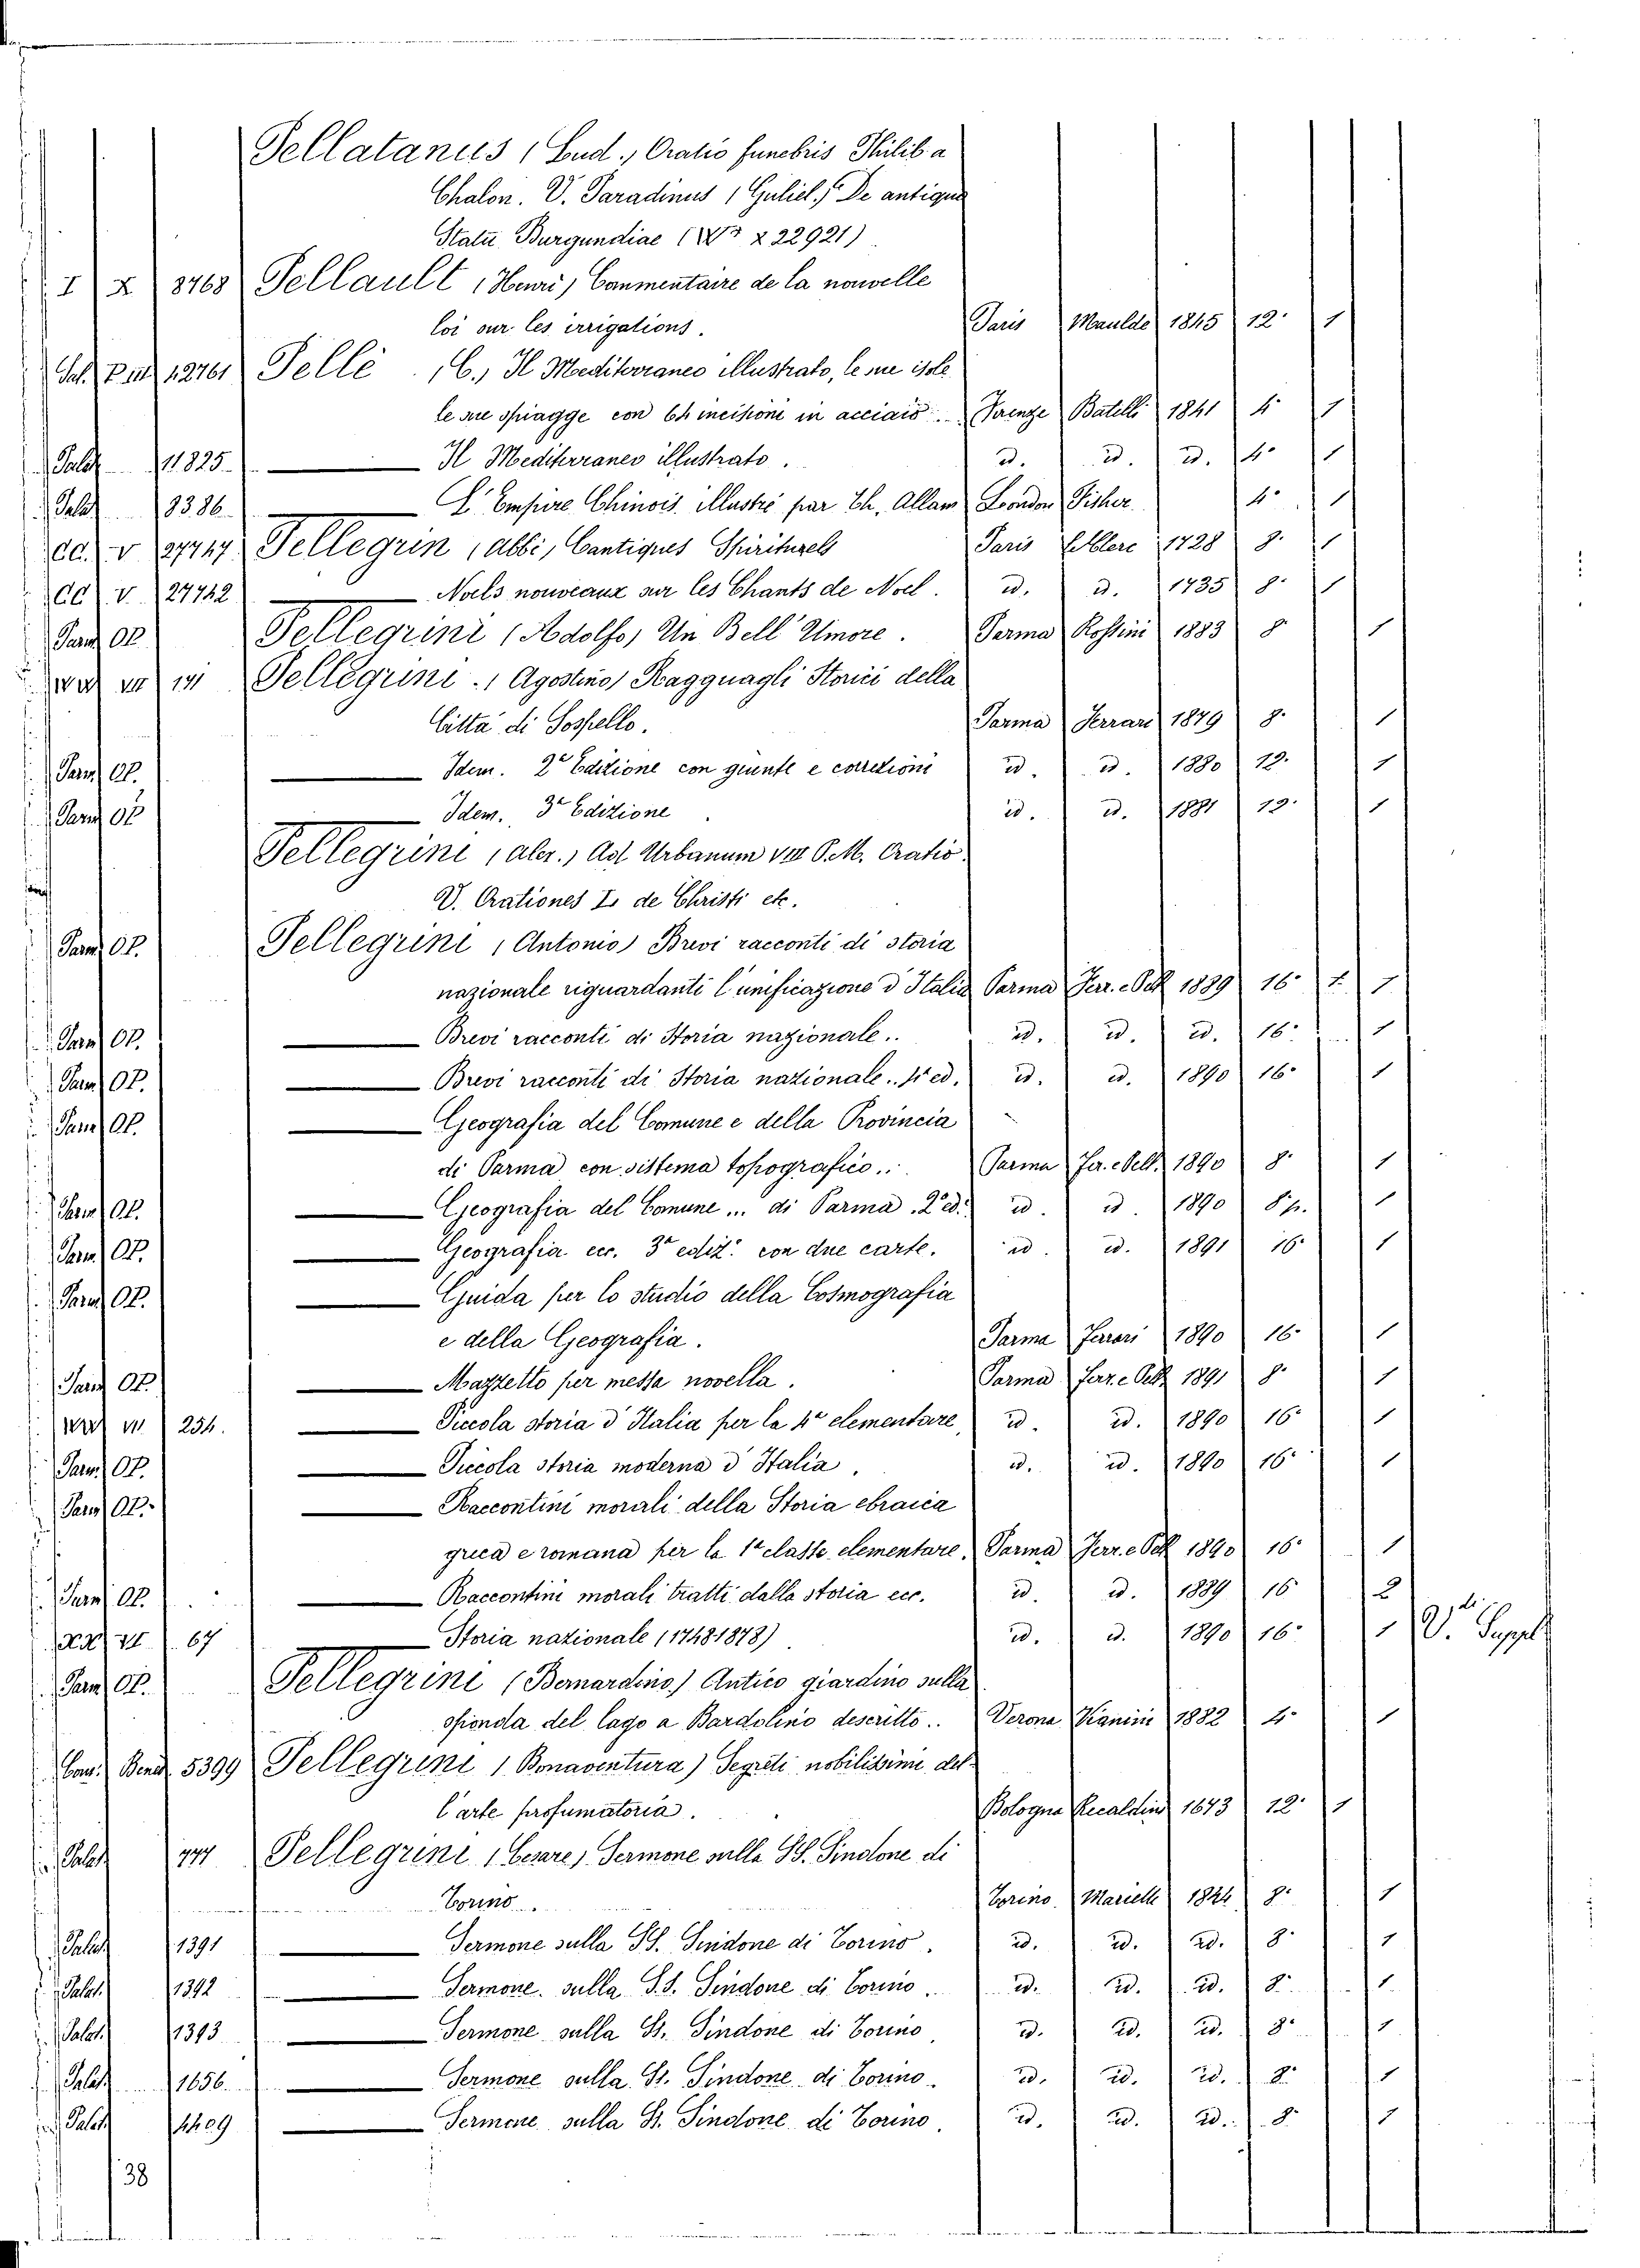 Pellatanus (Eud., Oratio funebris Philib. a
Chalon. V. Paradinus (Guliel.) De antiquo
Statu Burgundiae ( X 22921)
I X 8768 Pellault (Henri) Commentaire de la nouvelle
loi sur les irrigations. Paris Maulde 1845 12° 1
12761 Pellé (C.) Il Mediterraneo illustrato, le sue isole
le sue spiagge con 64 incisioni in acciaio Firenze Batelli 1841 4° 1
Palat 11825 — Il Mediterraneo illustrato. id. id. id. 4° 1
Palat 8386 — L'Empire Chinois illustré par Th. Allam London Fisher 4° 1
CC. V 27747 Pellegrin (abbé) Cantiques Spirituels Paris 1728 8° 1
CC V 27742 — Noels nouveaux sur les Chants de Noel. id. id. 1735 8° 1
Parm OP. Pellegrini (Adolfo) Un Bell'Umore. Parma Rossini 1883 8° 1
VII 141 Pellegrini (Agostino) Ragguagli Storici della
Città di Sospello. Parma Ferrari 1879 8° 1
Parm OP. — Idem. 2ª Edizione con giunte e correzioni id. id. 1880 12° 1
Parm OP — Idem. 3ª Edizione id. id. 1881 12° 1
Pellegrini (aler.) Ad Urbanum VIII P.M. Oratio
V. Orationes de Christi etc.
Parm OP. Pellegrini (Antonio) Brevi racconti di storia
nazionale riguardanti l'unificazione d'Italia Parma Ferr. e Pell 1889 16° 1
Parm OP. — Brevi racconti di Storia nazionale.. id. id. id. 16° 1
Parm OP. — Brevi racconti di Storia nazionale.. 4ª ed. id. id. 1890 16° 1
Parm OP. — Geografia del Comune e della Provincia
di Parma con sistema topografico.. Parma Fer. e Pell. 1890 8° 1
Parm OP. — Geografia del Comune ... di Parma. 2ª ed. id. id. 1890 8° p. 1
Parm OP. — Geografia ecc. 3ª ediz. con due carte. id. id. 1891 16° 1
Parm OP. — Guida per lo studio della Cosmografia
e della Geografia. Parma Ferrari 1890 16° 1
Parm OP. — Mazzetto per messa novella. Parma Ferr. e Pell 1891 8° 1
VII 254. — Piccola storia d'Italia per la 4ª elementare id. id. 1890 16° 1
Parm OP. — Piccola storia moderna d'Italia. id. id. 1890 16° 1
Parm OP. — Raccontini morali della Storia ebraica
greca e romana per la 1ª classe elementare. Parma Ferr. e Pell 1890 16° 1
Parm OP. — Raccontini morali tratti dalla storia ecc. id. id. 1889 16° 2
67 — Storia nazionale (1748 1878) id. id. 1890 16° 1 V. Suppl
Parm OP. Pellegrini (Bernardino) Antico giardino sulla
sponda del lago a Bardolino descritto.. Verona Vianini 1882 4° 1
Cam. Bend. 5399 Pellegrini (Bonaventura) Segreti nobilissimi del-
l'arte profumatoria. Bologna Recaldini 1673 12° 1
Palat 777 Pellegrini (Cesare) Sermone sulla SS. Sindone di
Torino. Torino Marietti 1844 8° 1
Palat 1391 — Sermone sulla SS. Sindone di Torino. id. id. id. 8° 1
Palat. 1392 — Sermone sulla S.S. Sindone di Torino. id. id. id. 8° 1
Palat. 1393 — Sermone sulla SS. Sindone di Torino id. id. id. 8° 1
Palat 1656. — Sermone sulla SS. Sindone di Torino. id. id. id. 8° 1
Palat 4409 — Sermone sulla SS. Sindone di Torino. id. id. id. 8° 1
38